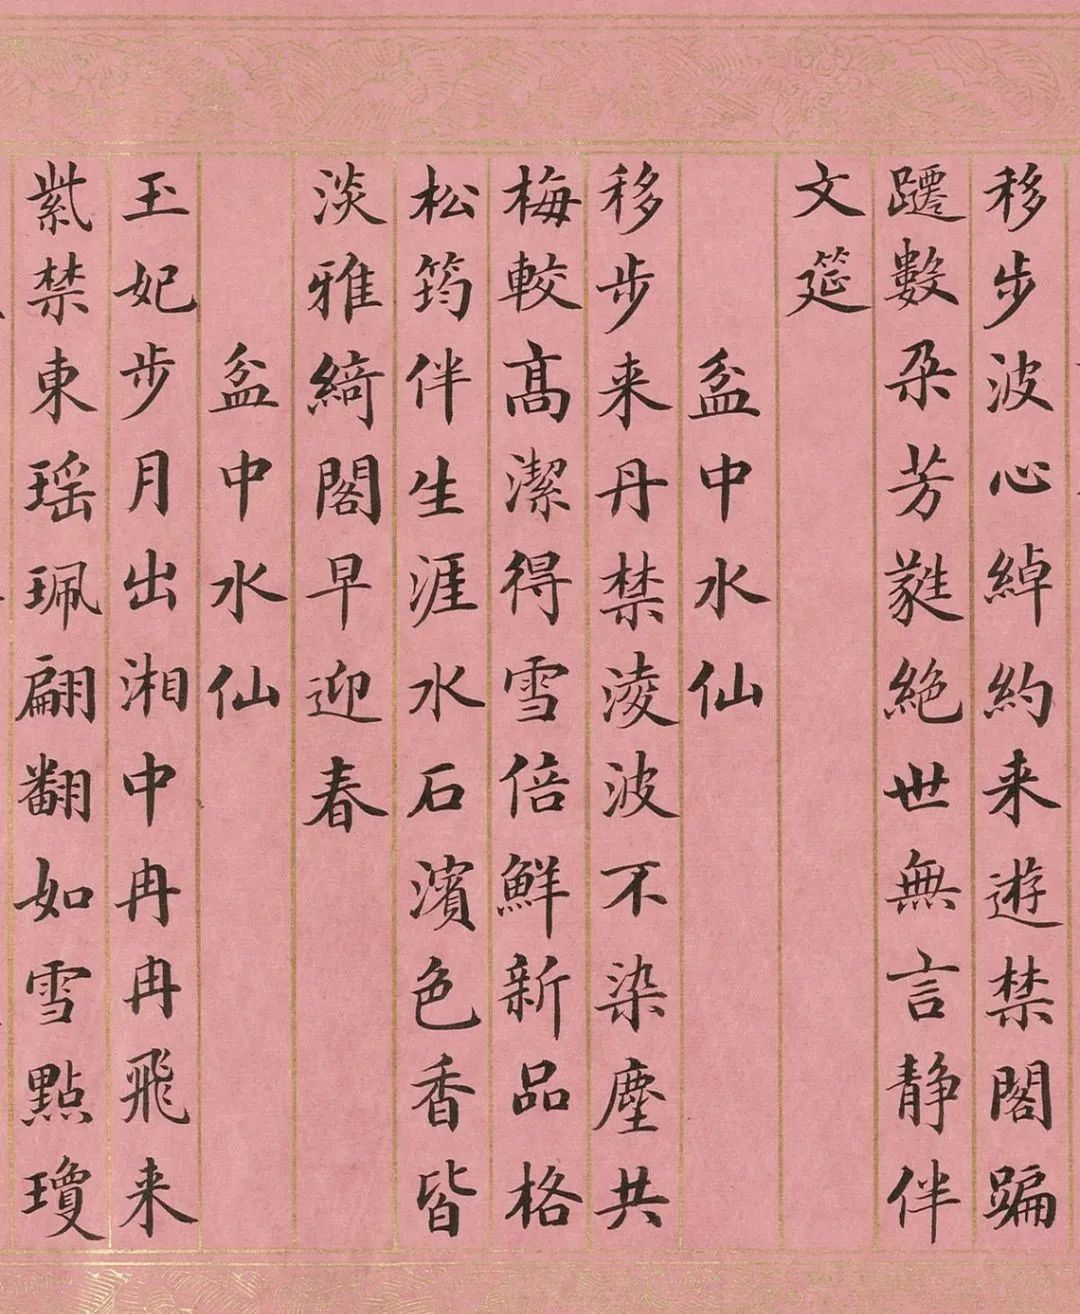 移步波心綽約来遊禁閣蹁
躚數朵芳蕤絶世無言靜伴
文筵
盆中水仙
移步来丹禁淩波不染塵共
梅較髙潔得雪倍鮮新品格
松筠伴生涯水石濱色香皆
淡雅綺閣早迎春
盆中水仙
玉妃步月出湘中冉冉飛来
紫禁東瑶珮翩翻如雪點瓊